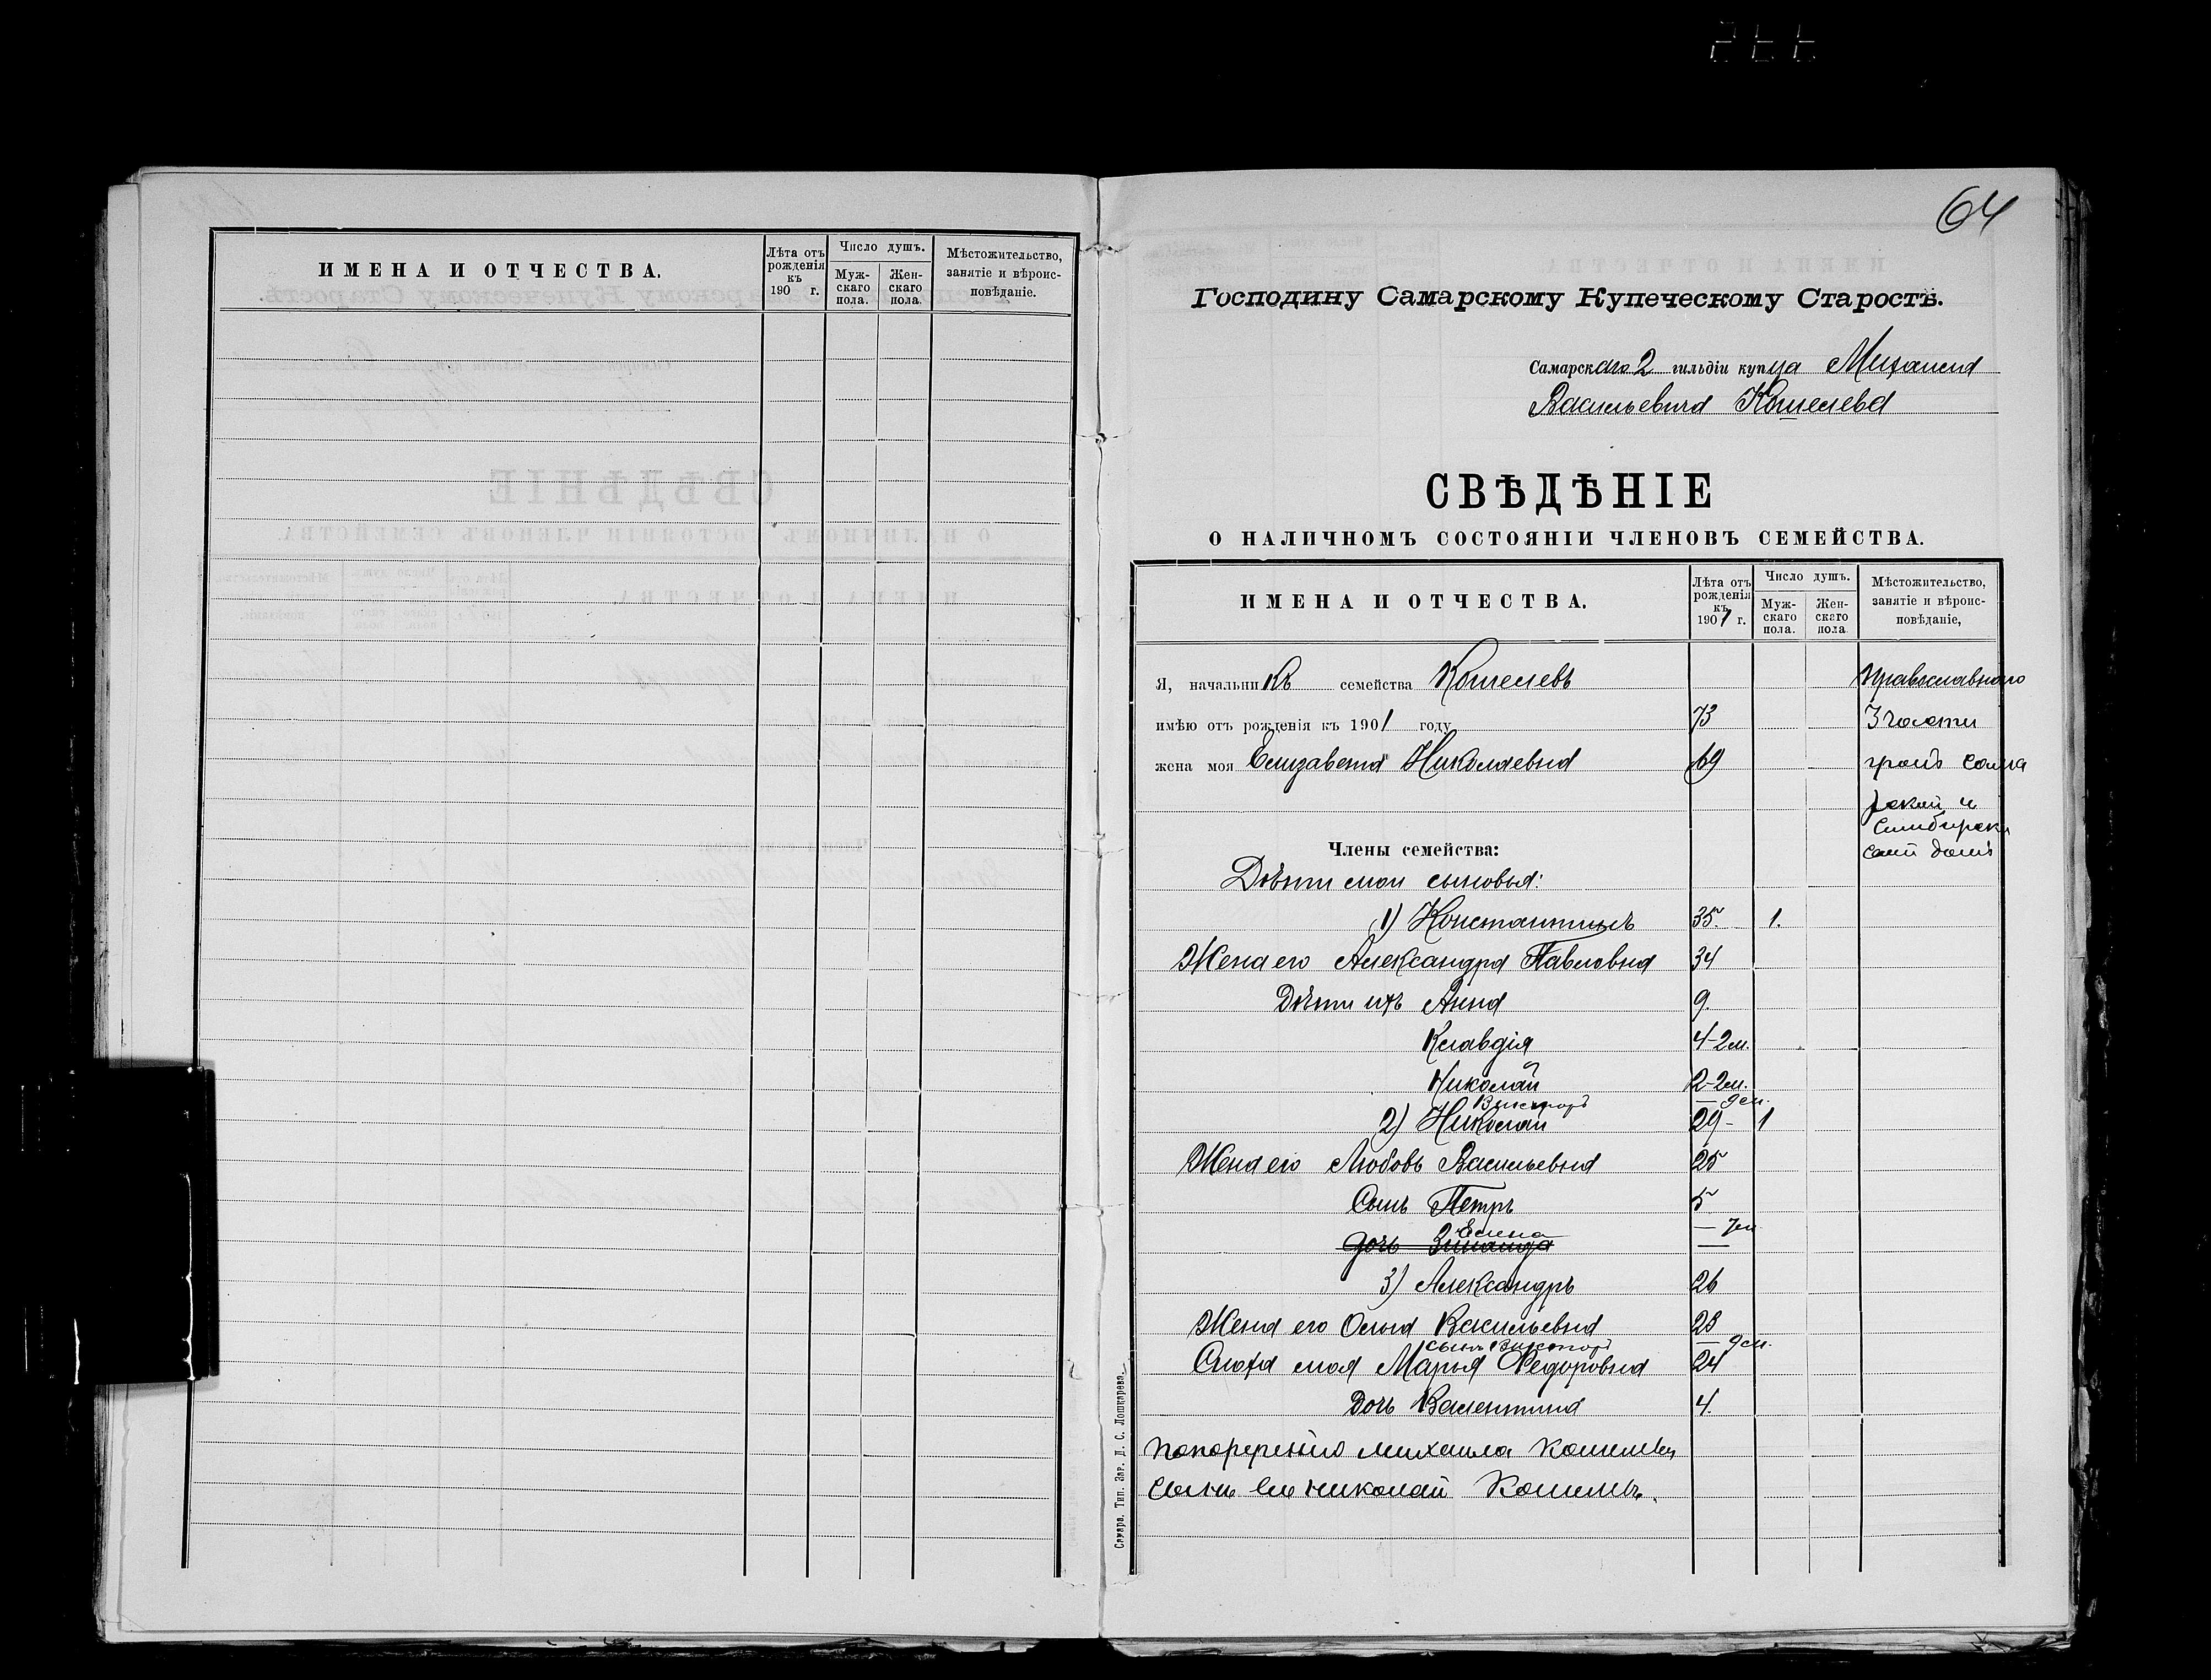 ИМЕНА И ОТЧЕСТВА.
Лѣта отъ рожденія къ 190 г.
Число душъ.
Мужскаго пола.
Женскаго пола.
Мѣстожительство, занятіе и вѣроисповѣданіе.
64
Господину Самарскому Купеческому Старостѣ.
Самарскаго 2 гильдіи купца Михаила
Васильевича Кошелева
СВѢДѢНІЕ
О НАЛИЧНОМЪ СОСТОЯНІИ ЧЛЕНОВЪ СЕМЕЙСТВА.
ИМЕНА И ОТЧЕСТВА.
Лѣта отъ рожденія къ 1901 г.
Число душъ.
Мужскаго пола.
Женскаго пола
Мѣстожительство, занятіе и вѣроисповѣданіе,
Я, начальникъ семейства Кошелевъ Православнаго
имѣю отъ рожденія къ 1901 году 73 3 части
жена моя Елизавета Николаевна 69
Члены семейства:
Дѣти мои сыновья:
1) Константинъ 35. 1.
Жена его Александра Павловна 34
Дѣти ихъ Анна 9.
Клавдія 4-2 м.
Николай 2-2 м.
Викторъ — 9 м.
2) Николай 29 - 1
Жена его Любовь Васильевна 25
Сынъ Петръ 5
Елена — 7 м
дочь Зинаида —
3) Александръ 26
Жена его Ольга Васильевна 23
сынъ Викторъ — 9 м.
Сноха моя Марья Федоровна 24
Дочь Валентина 4.
Михаила Кошелева
Николай Кошелевъ.
Самара. Тип. Зар. Д. С. Лошкарева.